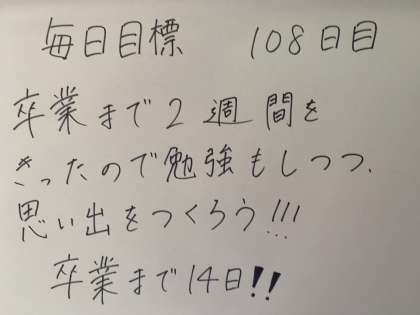 毎日目標　108日目
卒業まで2週間を
きったので勉強もしつつ、
思い出をつくろう!!!
卒業まで14日!!